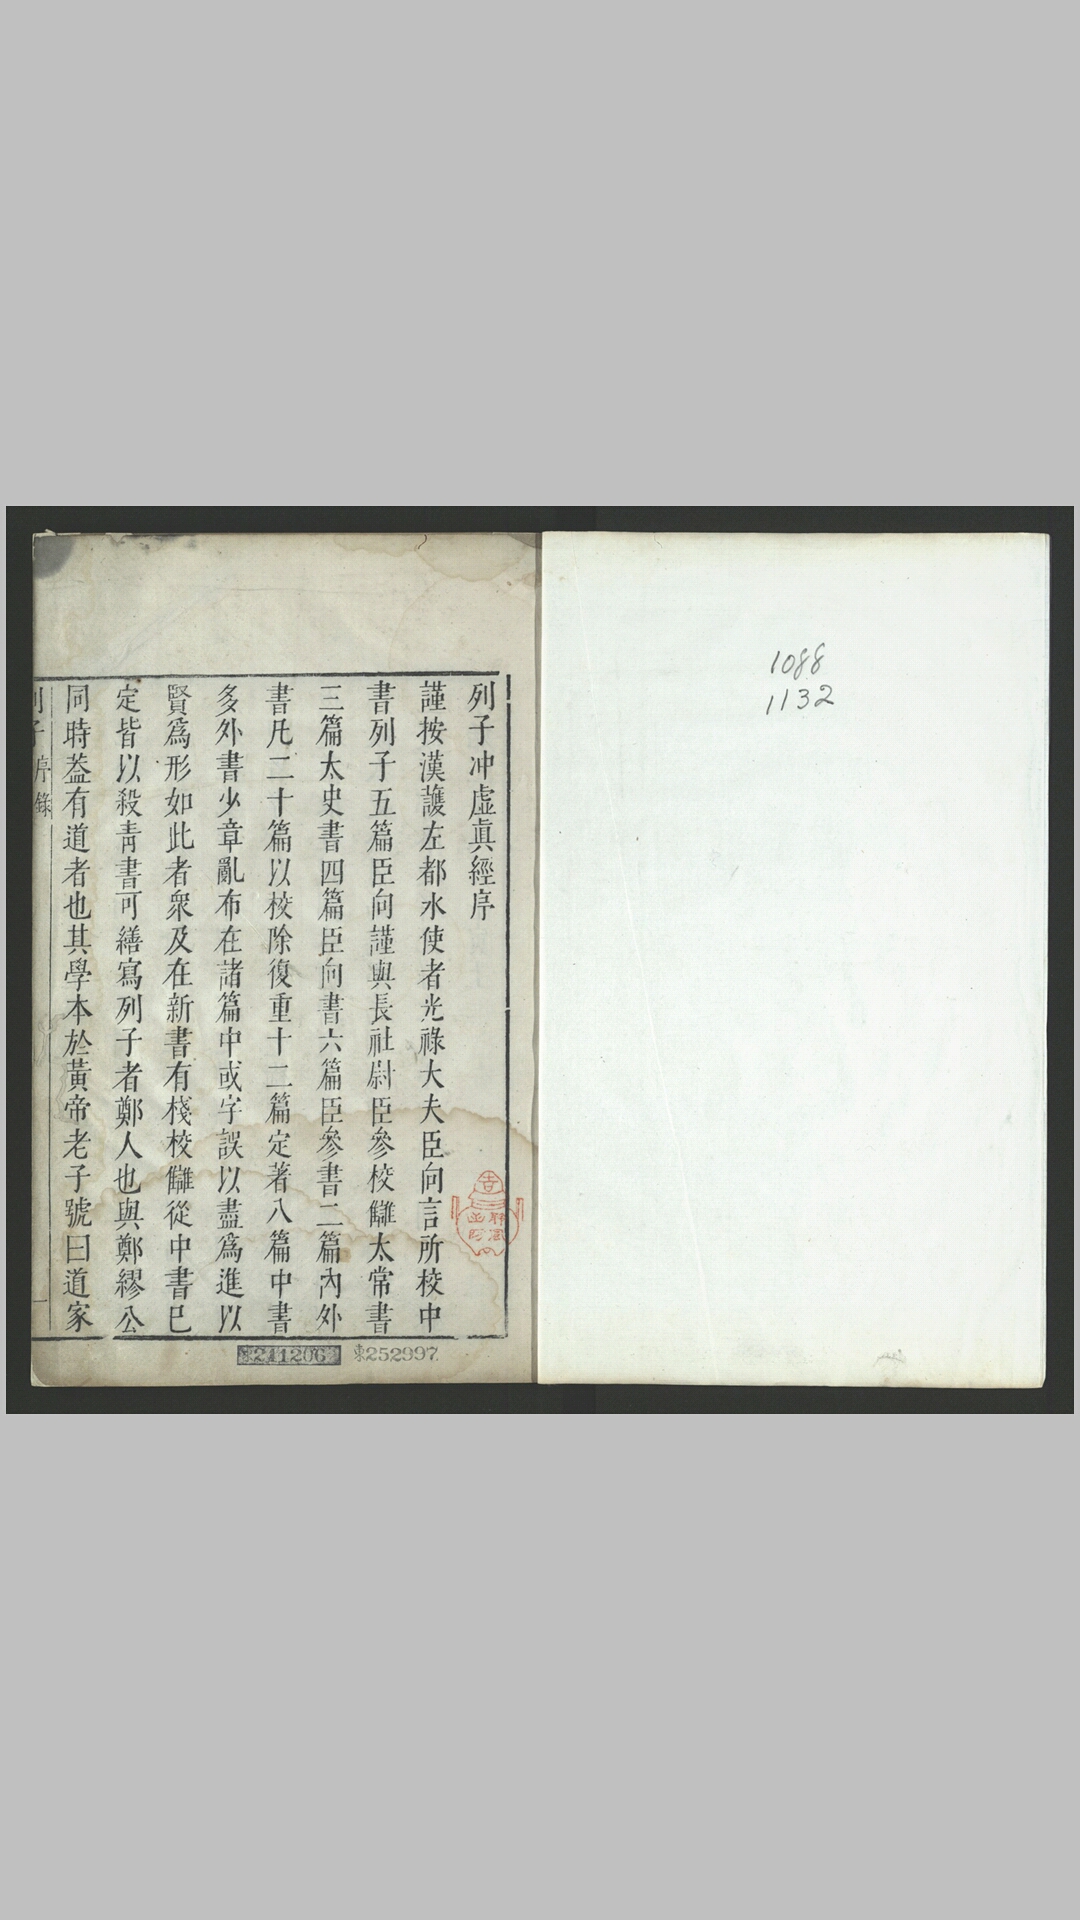 1088
1132
列子冲虛眞經序
謹按漢護左都水使者光祿大夫臣向言所校中
書列子五篇臣向謹與長社尉臣參校讎太常書
三篇太史書四篇臣向書六篇臣參書二篇內外
書凡二十篇以校除復重十二篇定著八篇中書
多外書少章亂布在諸篇中或字誤以盡爲進以
賢爲形如此者衆及在新書有棧校讎從中書已
定皆以殺靑書可繕寫列子者鄭人也與鄭繆公
同時葢有道者也其學本於黃帝老子號曰道家
列子 序錄 一
東252997
241206